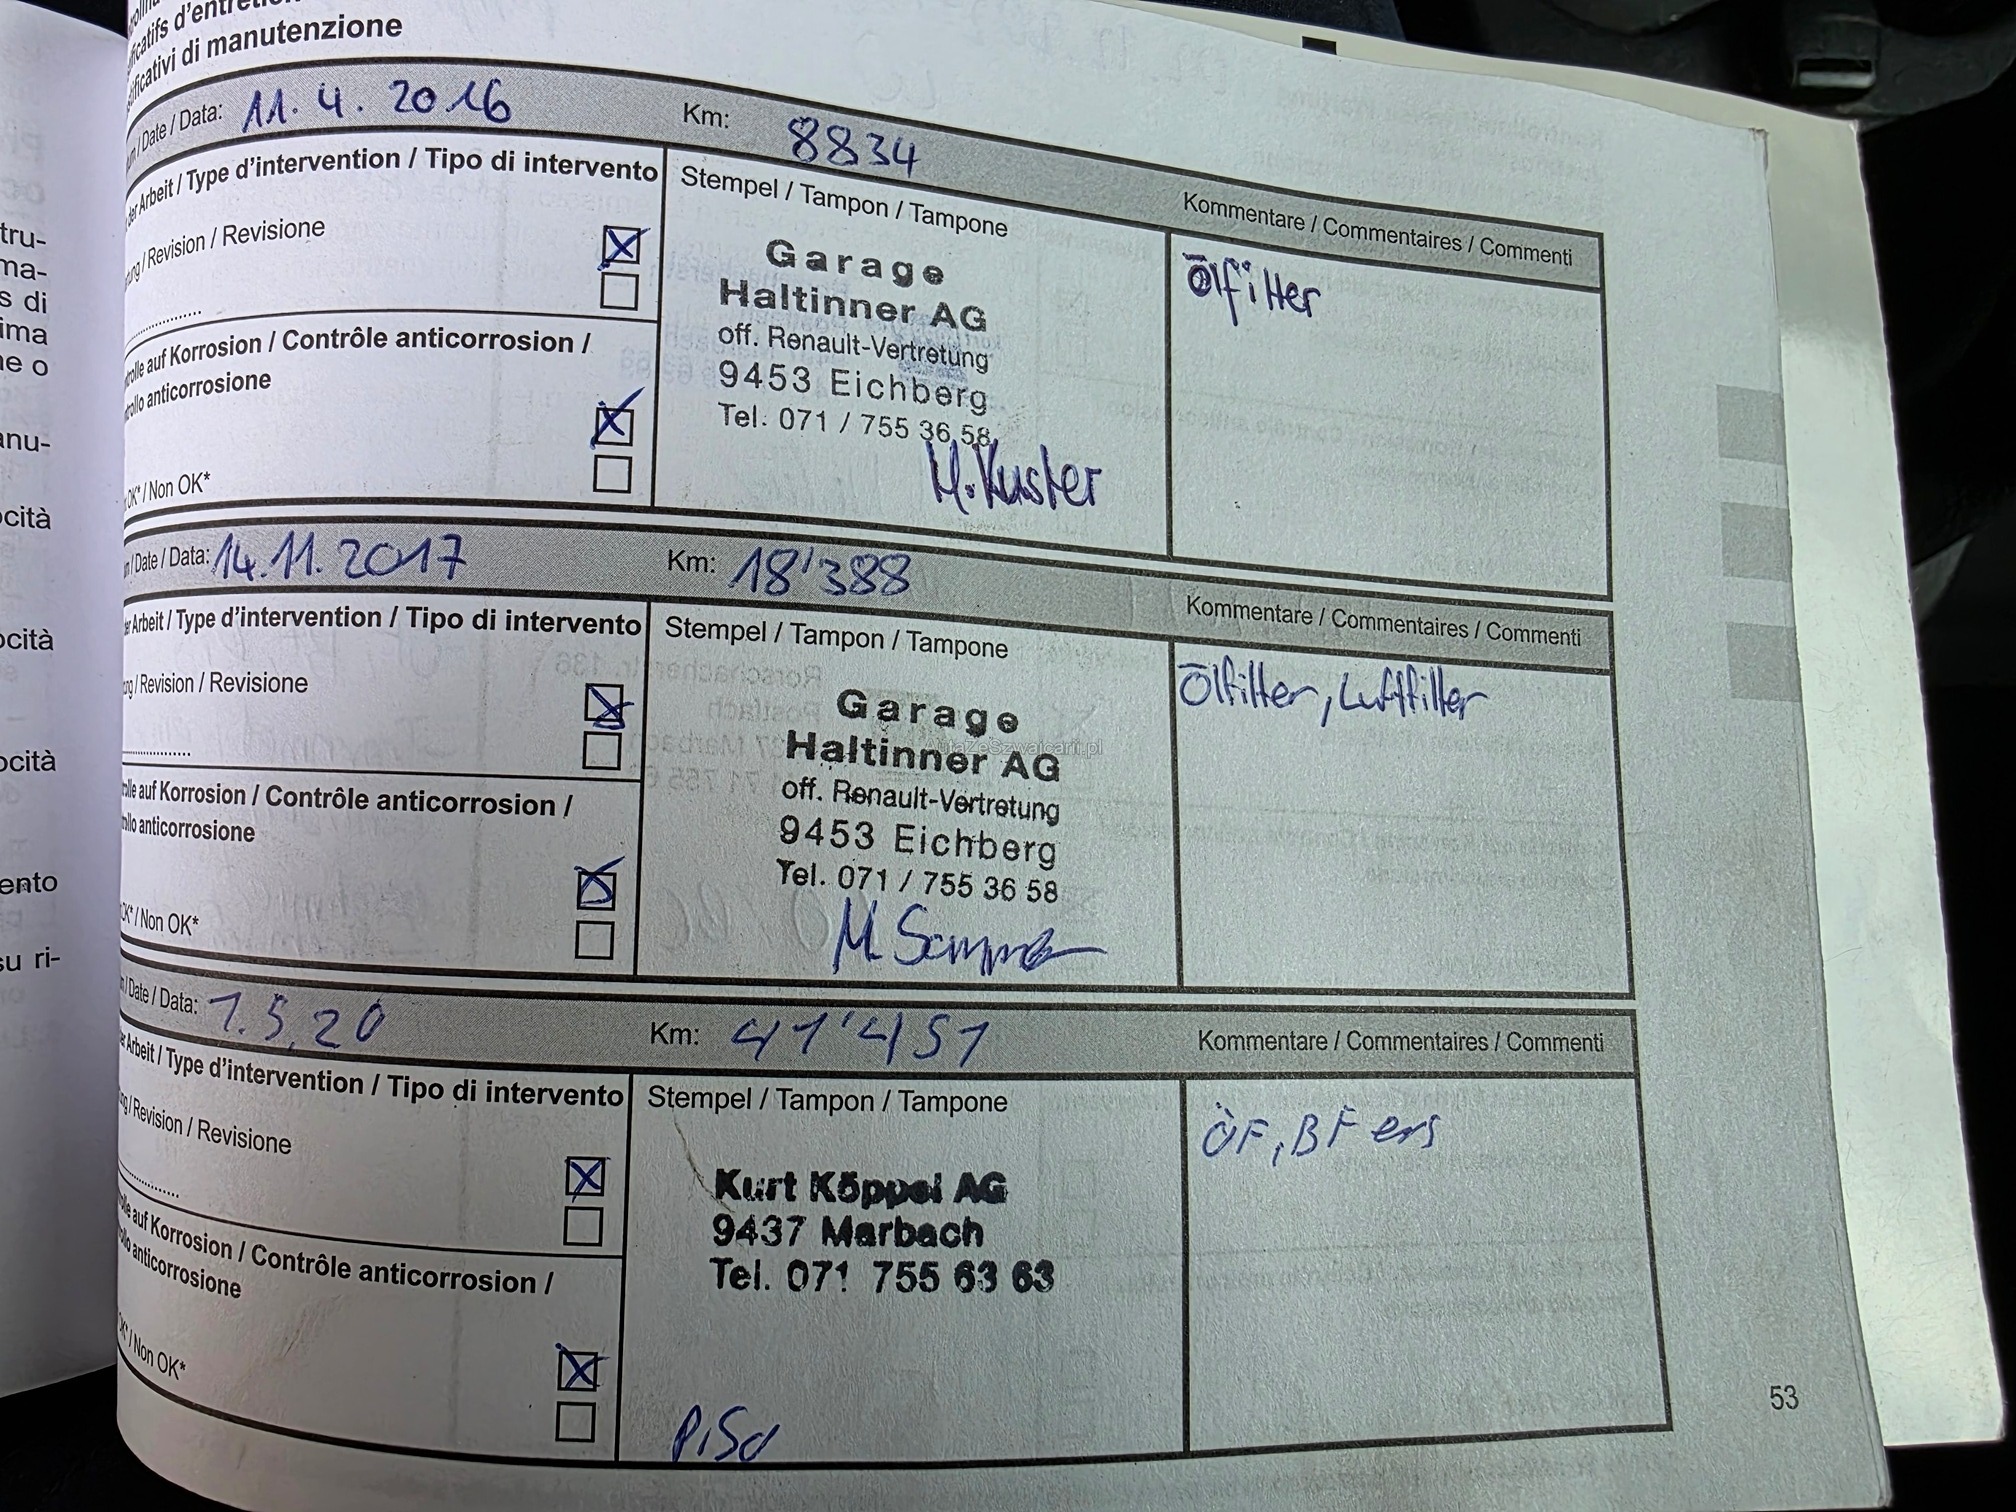 catifs d'entretien
ificativi di manutenzione
Date / Data: 11. 4. 2016 Km: 8834
der Arbeit / Type d'intervention / Tipo di intervento
Stempel / Tampon / Tampone
Kommentare / Commentaires / Commenti
Revision / Revisione
Garage
Haltinner AG
off. Renault-Vertretung
9453 Eichberg
Tel. 071 / 755 36 58
M. Kuster
Ölfilter
auf Korrosion / Contrôle anticorrosion /
anticorrosione
OK* / Non OK*
Date / Data: 14.11.2017 Km: 18'388
Arbeit / Type d'intervention / Tipo di intervento
Stempel / Tampon / Tampone
Kommentare / Commentaires / Commenti
Revision / Revisione
Garage
Haltinner AG
off. Renault-Vertretung
9453 Eichberg
Tel. 071 / 755 36 58
Ölfilter, Luftfilter
AutaZeSzwajcarii.pl
auf Korrosion / Contrôle anticorrosion /
anticorrosione
OK* / Non OK*
Date / Data: 1.5.20 Km: 41'451
Kommentare / Commentaires / Commenti
Arbeit / Type d'intervention / Tipo di intervento
Stempel / Tampon / Tampone
Revision / Revisione
Kurt Köppel AG
9437 Marbach
Tel. 071 755 63 63
ÖF, BF ers
auf Korrosion / Contrôle anticorrosion /
anticorrosione
OK* / Non OK*
53
tru-
ma-
s di
ima
ne o
anu-
ocità
ocità
ocità
ento
su ri-